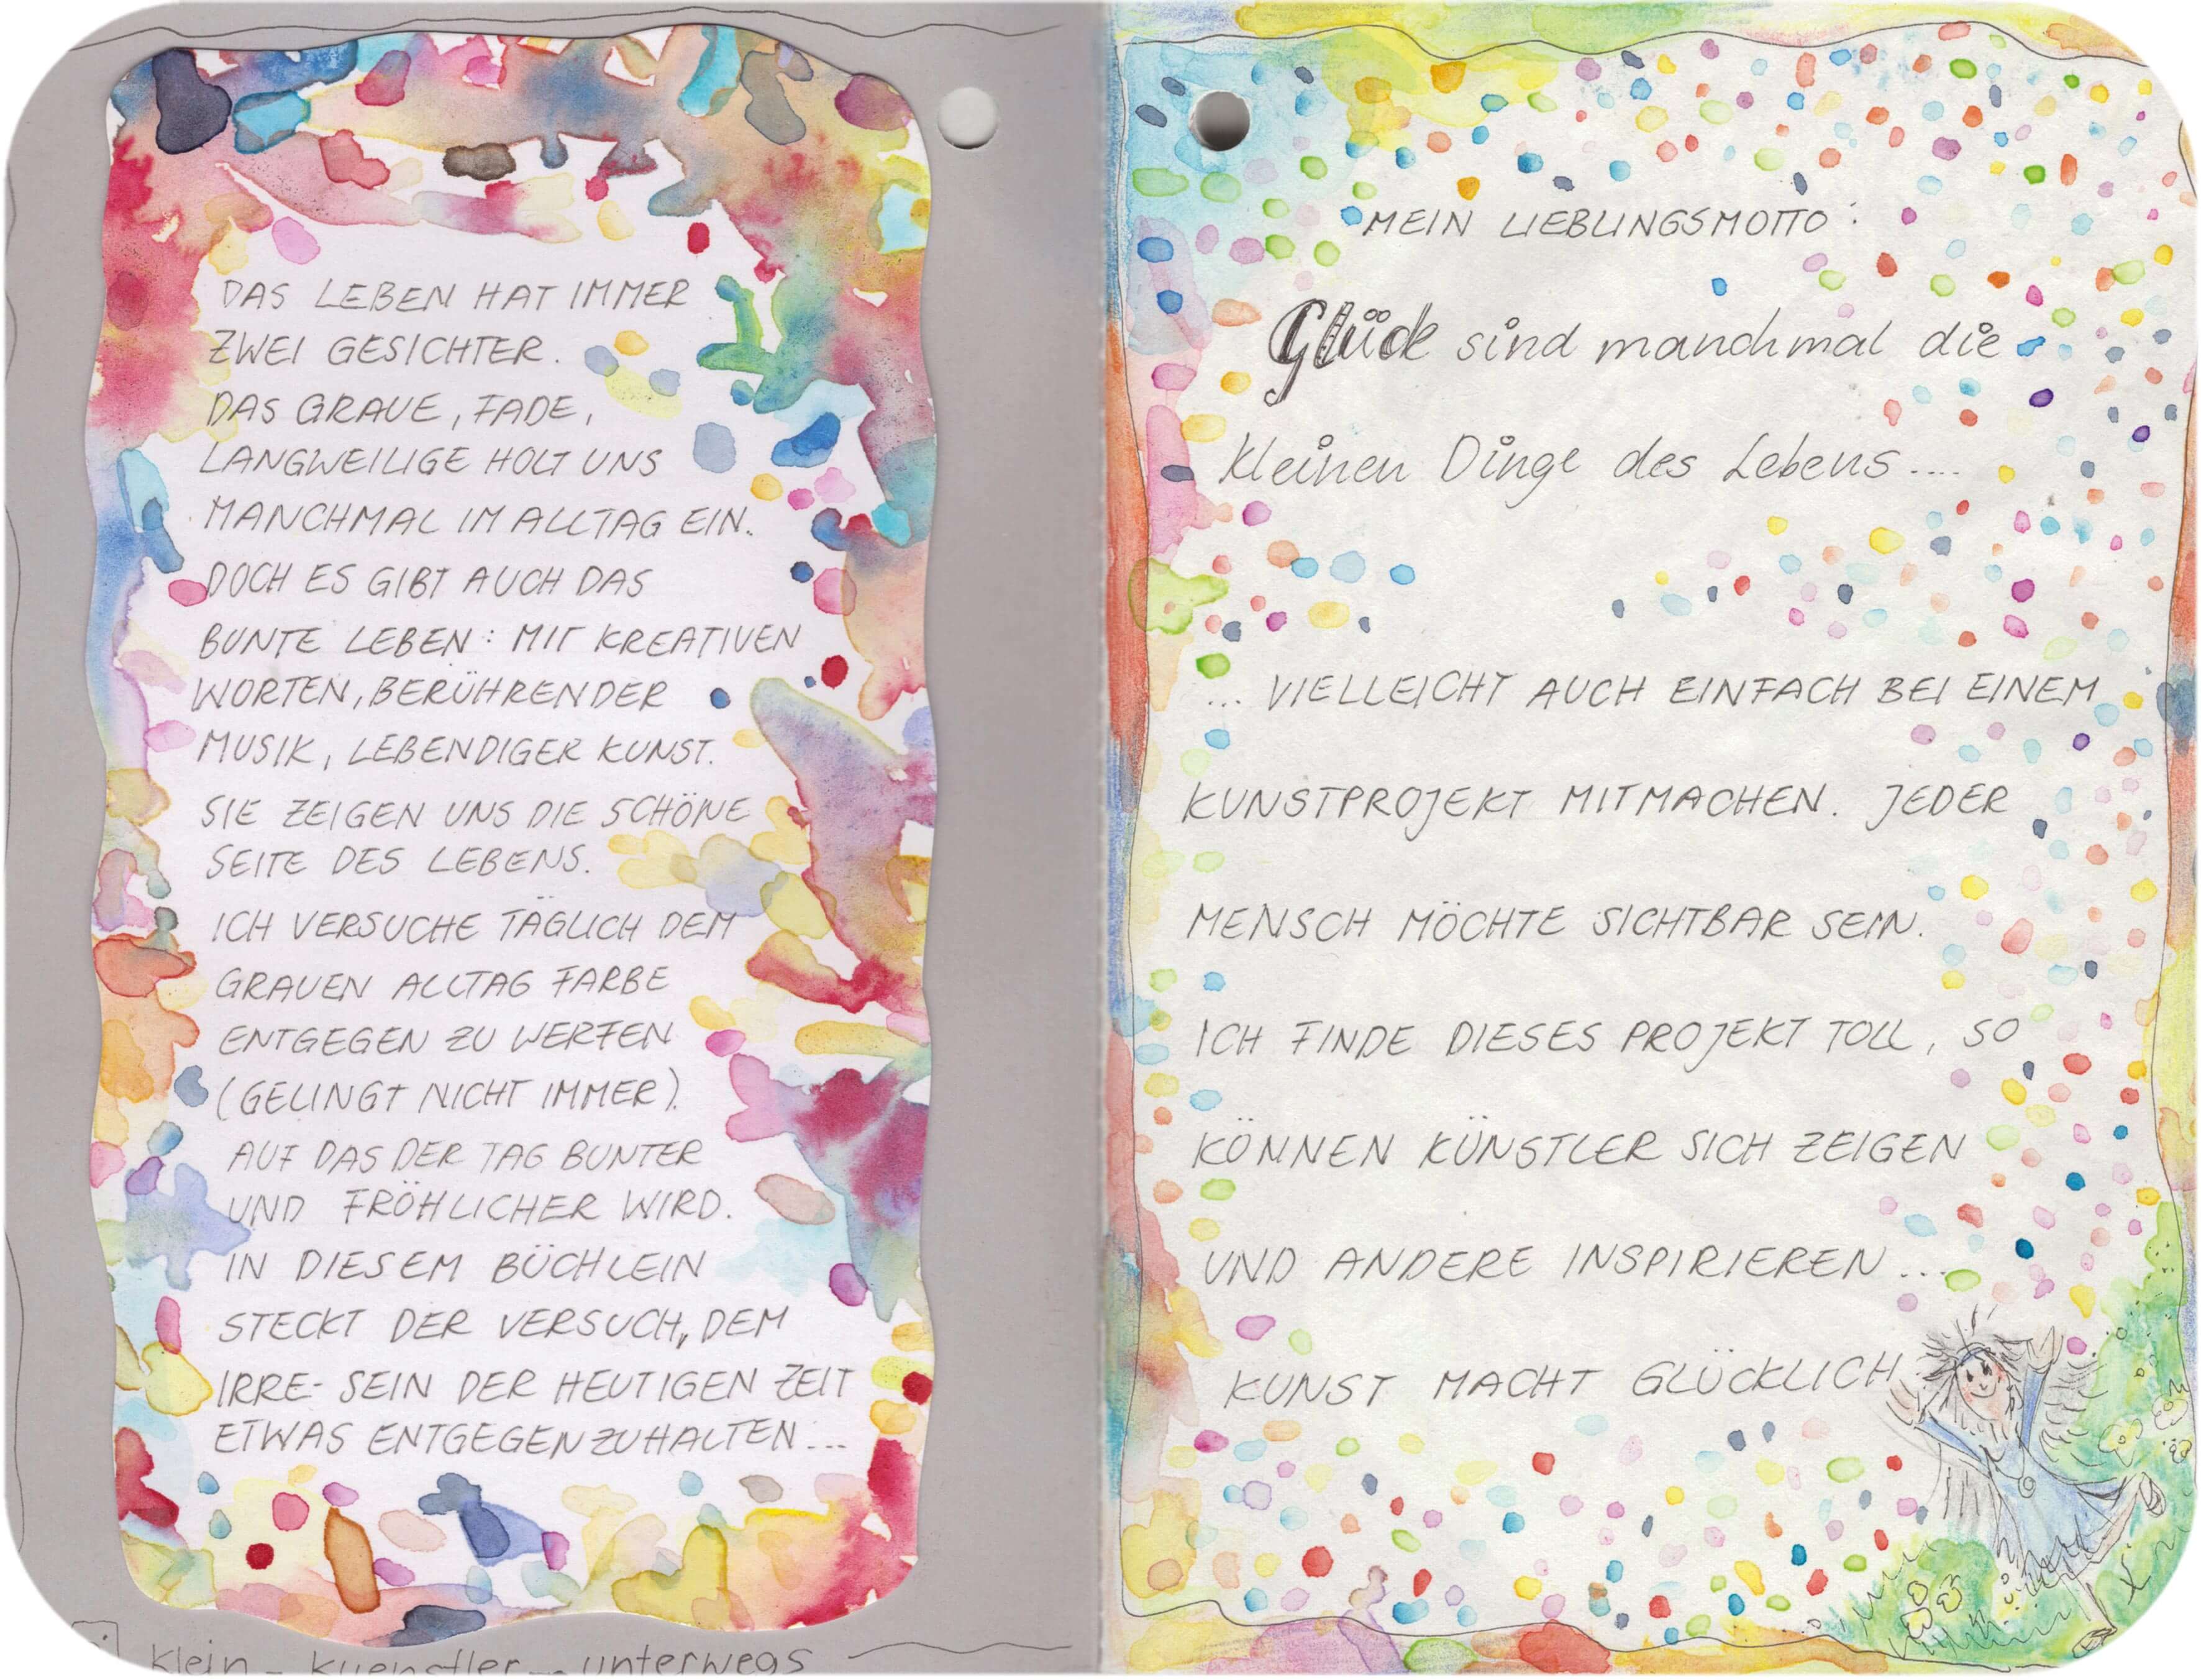 DAS LEBEN HAT IMMER
ZWEI GESICHTER.
DAS GRAUE, FADE,
LANGWEILIGE HOLT UNS
MANCHMAL IM ALLTAG EIN.
DOCH ES GIBT AUCH DAS
BUNTE LEBEN: MIT KREATIVEN
WORTEN, BERÜHRENDER
MUSIK, LEBENDIGER KUNST.
SIE ZEIGEN UNS DIE SCHÖNE
SEITE DES LEBENS.
ICH VERSUCHE TÄGLICH DEM
GRAUEN ALLTAG FARBE
ENTGEGEN ZU WERFEN
(GELINGT NICHT IMMER).
AUF DAS DER TAG BUNTER
UND FRÖHLICHER WIRD.
IN DIESEM BÜCHLEIN
STECKT DER VERSUCH, DEM
IRRE-SEIN DER HEUTIGEN ZEIT
ETWAS ENTGEGENZUHALTEN...
klein_kuenstler_unterwegs
MEIN LIEBLINGSMOTTO:
Glück sind manchmal die
kleinen Dinge des Lebens....
... VIELLEICHT AUCH EINFACH BEI EINEM
KUNSTPROJEKT MITMACHEN. JEDER
MENSCH MÖCHTE SICHTBAR SEIN.
ICH FINDE DIESES PROJEKT TOLL, SO
KÖNNEN KÜNSTLER SICH ZEIGEN
UND ANDERE INSPIRIEREN...
KUNST MACHT GLÜCKLICH.